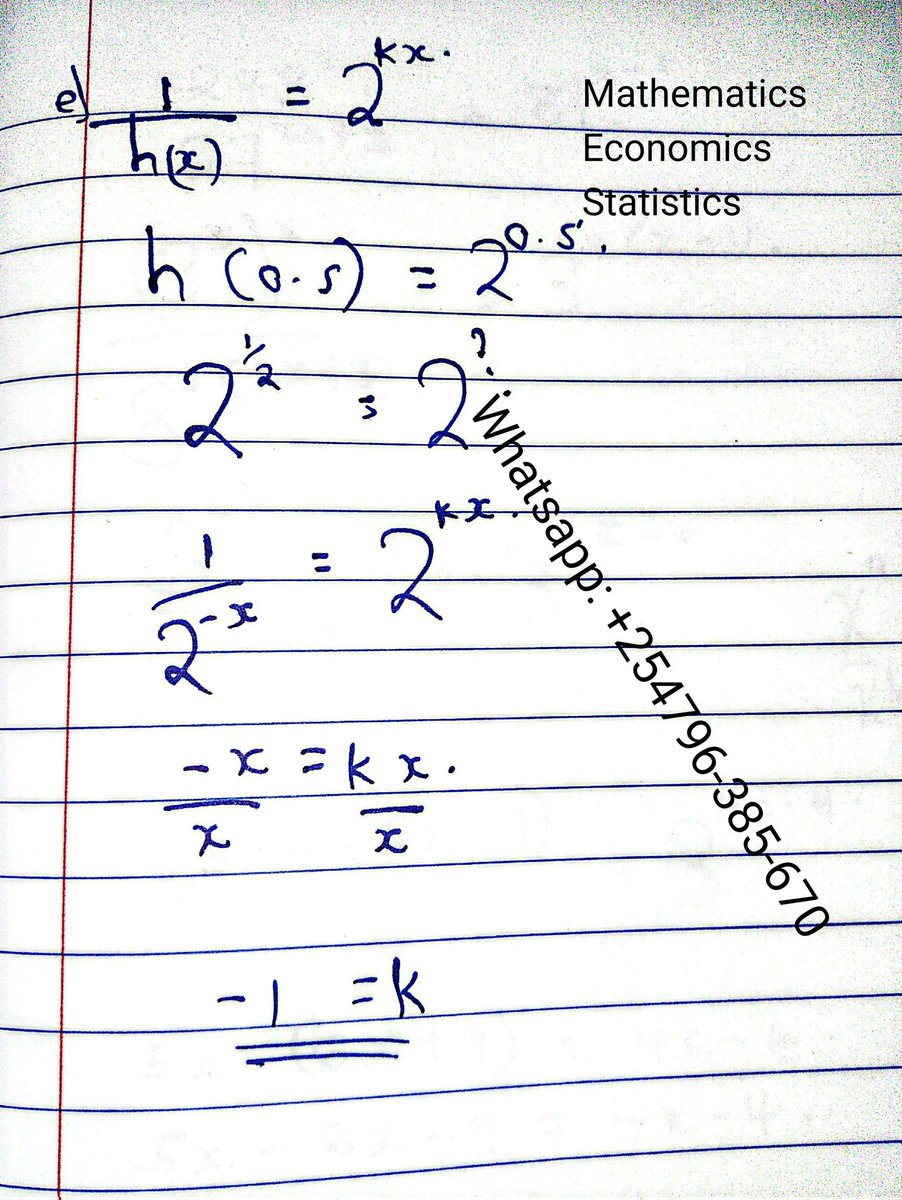 e) 1/h(x) = 2^kx.
Mathematics
Economics
Statistics
h (0.5) = 2^0.5.
2^1/2 = 2^?
1/2^-x = 2^kx.
-x/x = kx/x.
-1 = k
Whatsapp: +254796-385-670